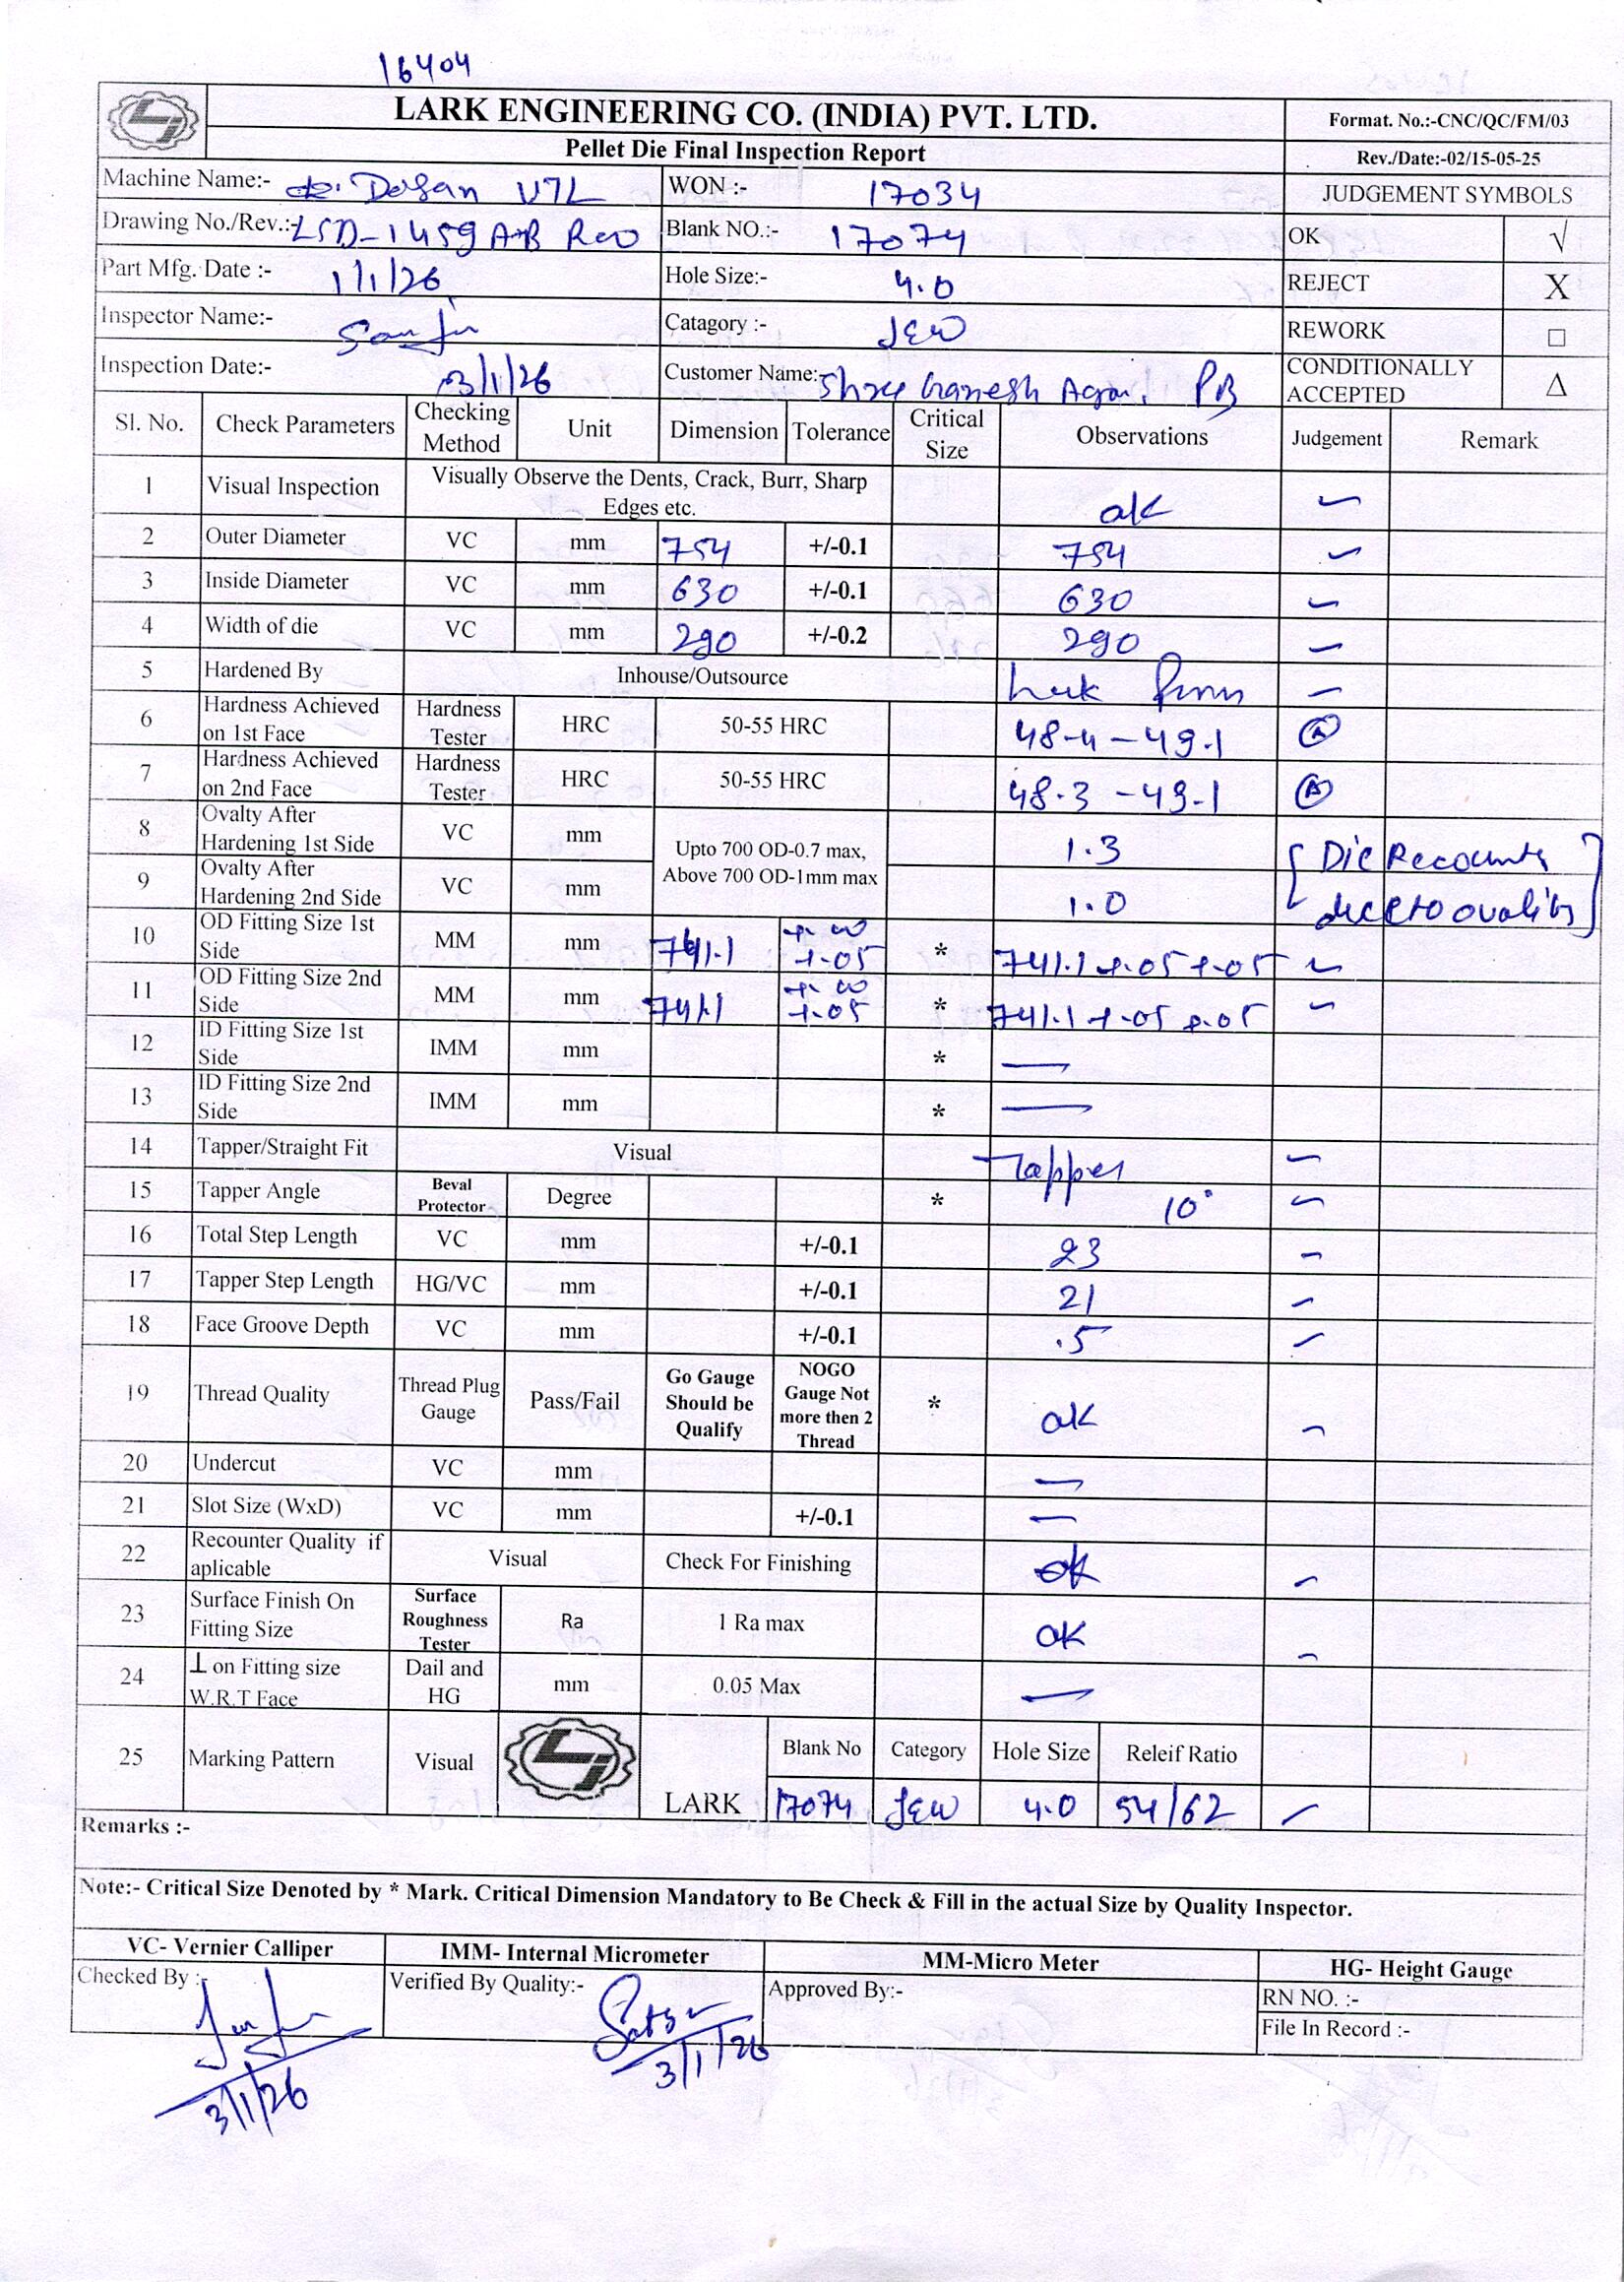 16404
LARK ENGINEERING CO. (INDIA) PVT. LTD.
Format. No.:-CNC/QC/FM/03
Pellet Die Final Inspection Report
Rev./Date:-02/15-05-25
Machine Name:- VTL WON :- 17034 JUDGEMENT SYMBOLS
Drawing No./Rev.:- LSD-1459 A+B Rev0 Blank NO.:- 17074 OK √
Part Mfg. Date :- 1/1/26 Hole Size:- 4.0 REJECT X
Inspector Name:- Catagory :- REWORK □
Inspection Date:- 3/1/26 Customer Name:- Shree Ganesh Agro. PB CONDITIONALLY ACCEPTED Δ
Sl. No. Check Parameters Checking Method Unit Dimension Tolerance Critical Size Observations Judgement Remark
1 Visual Inspection Visually Observe the Dents, Crack, Burr, Sharp Edges etc. ok
2 Outer Diameter VC mm 754 +/-0.1 754
3 Inside Diameter VC mm 630 +/-0.1 630
4 Width of die VC mm 290 +/-0.2 290
5 Hardened By Inhouse/Outsource
6 Hardness Achieved on 1st Face Hardness Tester HRC 50-55 HRC 48.4 - 49.1
7 Hardness Achieved on 2nd Face Hardness Tester HRC 50-55 HRC 48.3 - 49.1
8 Ovalty After Hardening 1st Side VC mm Upto 700 OD-0.7 max, Above 700 OD-1mm max 1.3 Die Recounts
9 Ovalty After Hardening 2nd Side VC mm 1.0 due to ovality
10 OD Fitting Size 1st Side MM mm 741.1 +.00 +.05 * 741.1 +.05 +.05
11 OD Fitting Size 2nd Side MM mm 741.1 +.00 +.05 * 741.1 +.05 +.05
12 ID Fitting Size 1st Side IMM mm * —
13 ID Fitting Size 2nd Side IMM mm * —
14 Tapper/Straight Fit Visual Tapper
15 Tapper Angle Beval Protector Degree * 10°
16 Total Step Length VC mm +/-0.1 23
17 Tapper Step Length HG/VC mm +/-0.1 21
18 Face Groove Depth VC mm +/-0.1 .5
19 Thread Quality Thread Plug Gauge Pass/Fail Go Gauge Should be Qualify NOGO Gauge Not more then 2 Thread * ok
20 Undercut VC mm —
21 Slot Size (WxD) VC mm +/-0.1 —
22 Recounter Quality if aplicable Visual Check For Finishing ok
23 Surface Finish On Fitting Size Surface Roughness Tester Ra 1 Ra max ok
24 ⊥ on Fitting size W.R.T Face Dail and HG mm 0.05 Max —
25 Marking Pattern Visual LARK Blank No Category Hole Size Releif Ratio
17074 4.0 54/62
Remarks :-
Note:- Critical Size Denoted by * Mark. Critical Dimension Mandatory to Be Check & Fill in the actual Size by Quality Inspector.
VC- Vernier Calliper IMM- Internal Micrometer MM-Micro Meter HG- Height Gauge
Checked By :- Verified By Quality:- Approved By:- RN NO. :-
File In Record :-
3/1/26 3/1/26